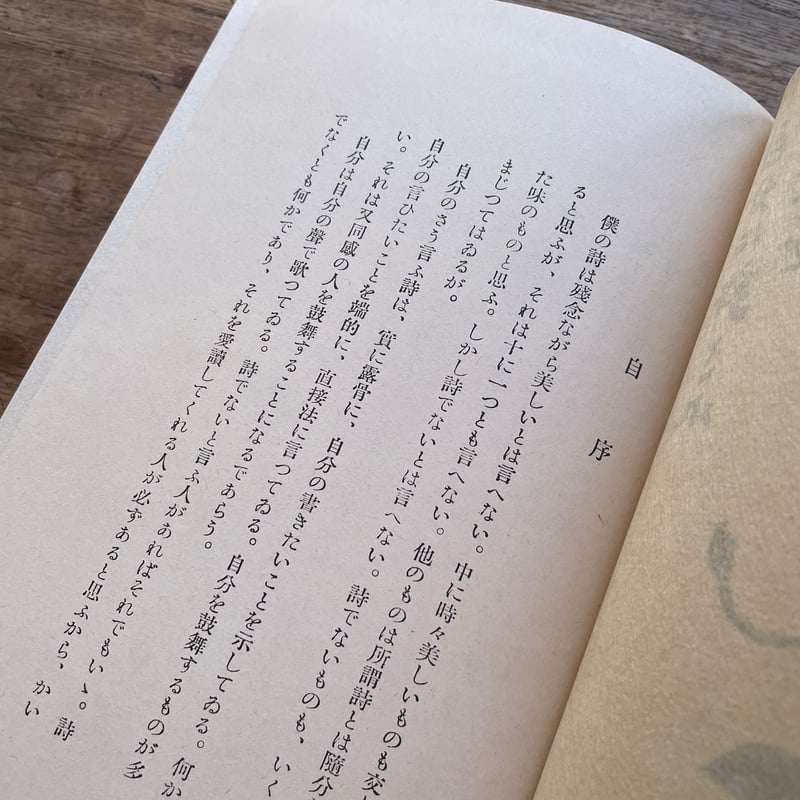 自序
僕の詩は残念ながら美しいとは言へない。中に時々美しいものも交
ると思ふが、それは十に一つとも言へない。他のものは所謂詩とは隨分
た味のものと思ふ。しかし詩でないとは言へない。詩でないものも、いく
まじつてはゐるが。
自分のさう言ふ詩は、實に露骨に、自分の書きたいことを示してゐる。何か
自分の言ひたいことを端的に、直接法に言つてゐる。自分を鼓舞するものが多
い。それは又同感の人を鼓舞することになるであらう。
自分は自分の聲で歌つてゐる。詩でないと言ふ人があればそれでもいゝ。詩
でなくとも何かであり、それを愛讀してくれる人が必ずあると思ふから、かい